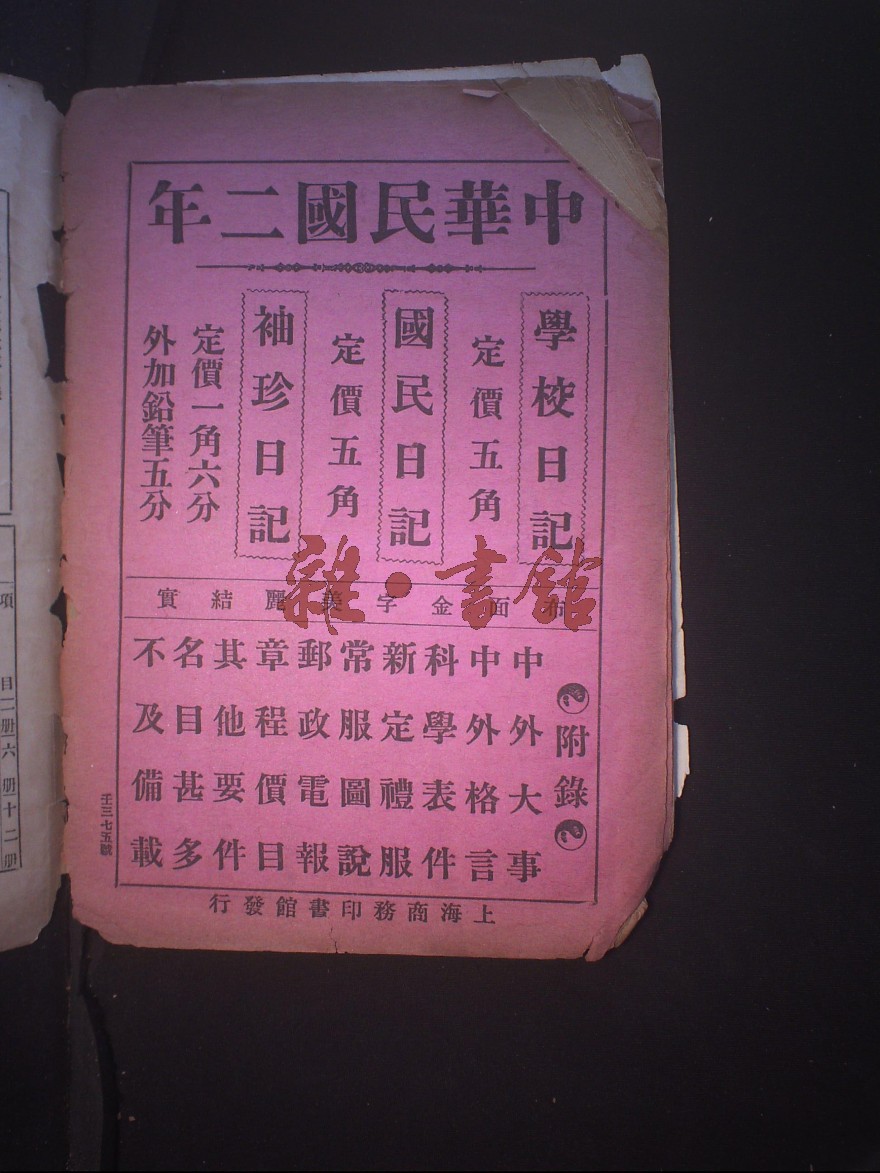 中華民國二年
學校日記
定價五角
國民日記
定價五角
袖珍日記
定價一角六分
外加鉛筆五分
布面金字美麗結實
附錄
中外大事
中外格言
科學表件
新定禮服
常服圖說
郵政電報
章程價目
其他要件
名目甚多
不及備載
上海商務印書館發行
壬三七五號
雜·書館
項
目
一册
六册
十二册